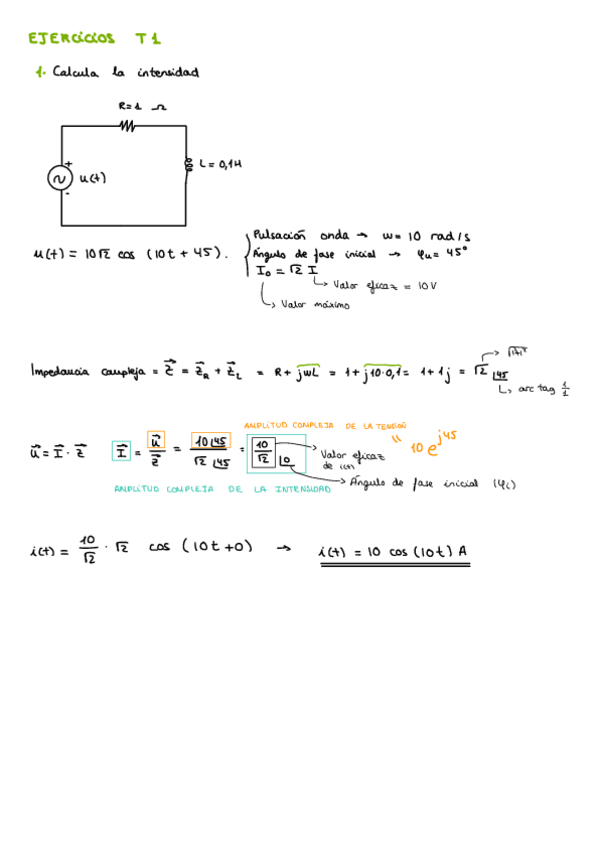 EJERCICIOS T1
1. Calcula la intensidad
R=1 Ω
L = 0,1H
+
u(t)
-
u(t) = 10√2 cos (10t + 45).
Pulsación onda → w = 10 rad/s
Ángulo de fase inicial → φu = 45°
I₀ = √2 I
↳ Valor eficaz = 10V
↳ Valor máximo
Impedancia compleja = Z⃗ = Z⃗_R + Z⃗_L = R + jwL = 1 + j10·0,1 = 1 + 1j = √2 ∠45
→ √1²+1²
↳ arc tag 1/1
AMPLITUD COMPLEJA DE LA TENSIÓN
" 10 e^j45
u⃗ = I⃗ · Z⃗ I⃗ = u⃗/Z⃗ = 10∠45/√2∠45 = 10/√2 ∠0
→ Valor eficaz
→ Ángulo de fase inicial (φi)
AMPLITUD COMPLEJA DE LA INTENSIDAD
i(t) = 10/√2 · √2 cos (10t+0) → i(t) = 10 cos (10t) A